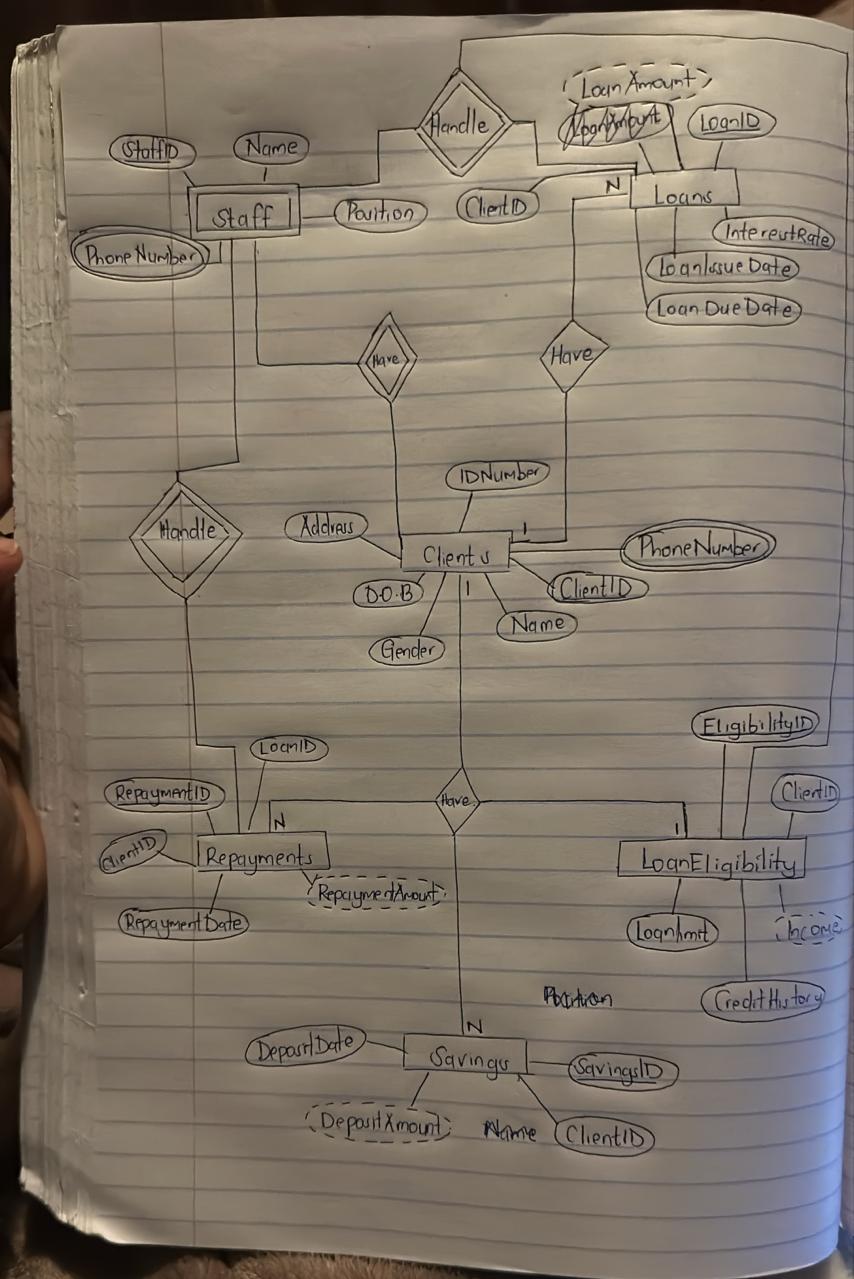 LoanAmount
Handle
LoanAmount
LoanID
StaffID
Name
N
Loans
ClientID
Staff
Position
InterestRate
PhoneNumber
LoanIssueDate
LoanDueDate
Have
Have
IDNumber
Address
1
Handle
Clients
PhoneNumber
D.O.B
1
ClientID
Name
Gender
EligibilityID
LoanID
RepaymentID
ClientID
Have
N
1
ClientID
Repayments
LoanEligibility
RepaymentAmount
RepaymentDate
Income
CreditHistory
Position
N
DepositDate
Savings
SavingsID
DepositAmount
Name
ClientID